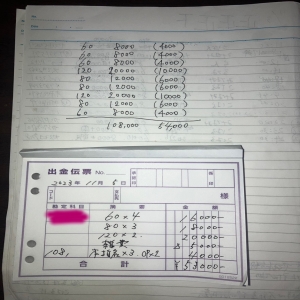 60 8000 (4000)
60 8000 (4000)
60 8000 (4000)
120 20000 (10000)
80 12000 (6000)
80 12000 (6000)
120 20000 (10000)
80 12000 (6000)
60 8000 (4000)
108,000 54,000
出金伝票 No.
2023年 11月 5日
様
勘定科目 摘要 金額
60×4 16000-
80×3 18000-
120×2 20000-
雑費 5000-
4000-
合計 ¥53000-